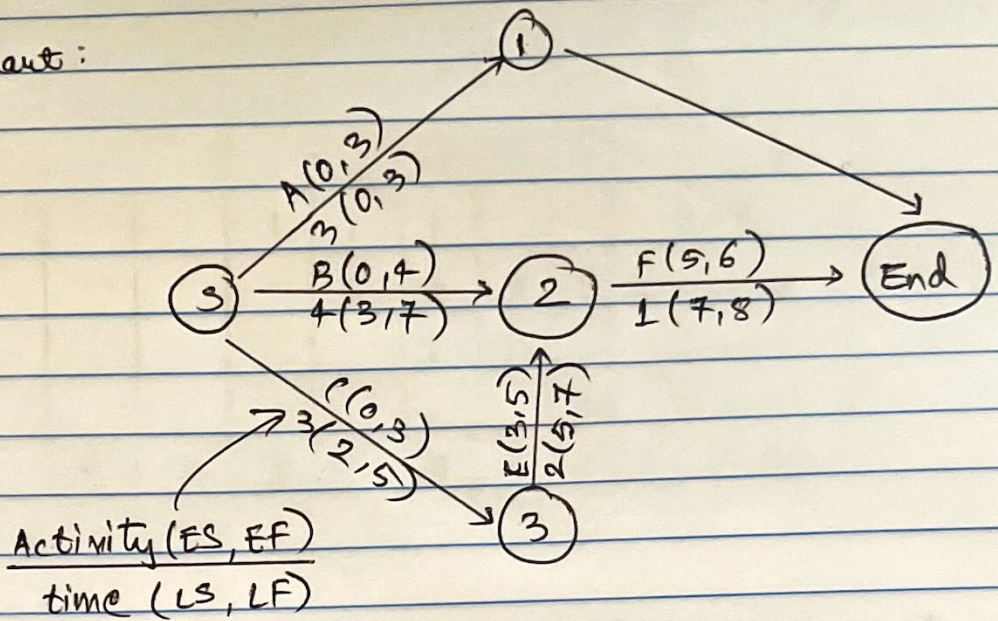 aut :
1
A(0,3)
3(0,3)
S
B(0,4)
4(3,7)
2
F(5,6)
1(7,8)
End
C(0,3)
3(2,5)
E(3,5)
2(5,7)
3
Activity(ES, EF)
time (LS, LF)